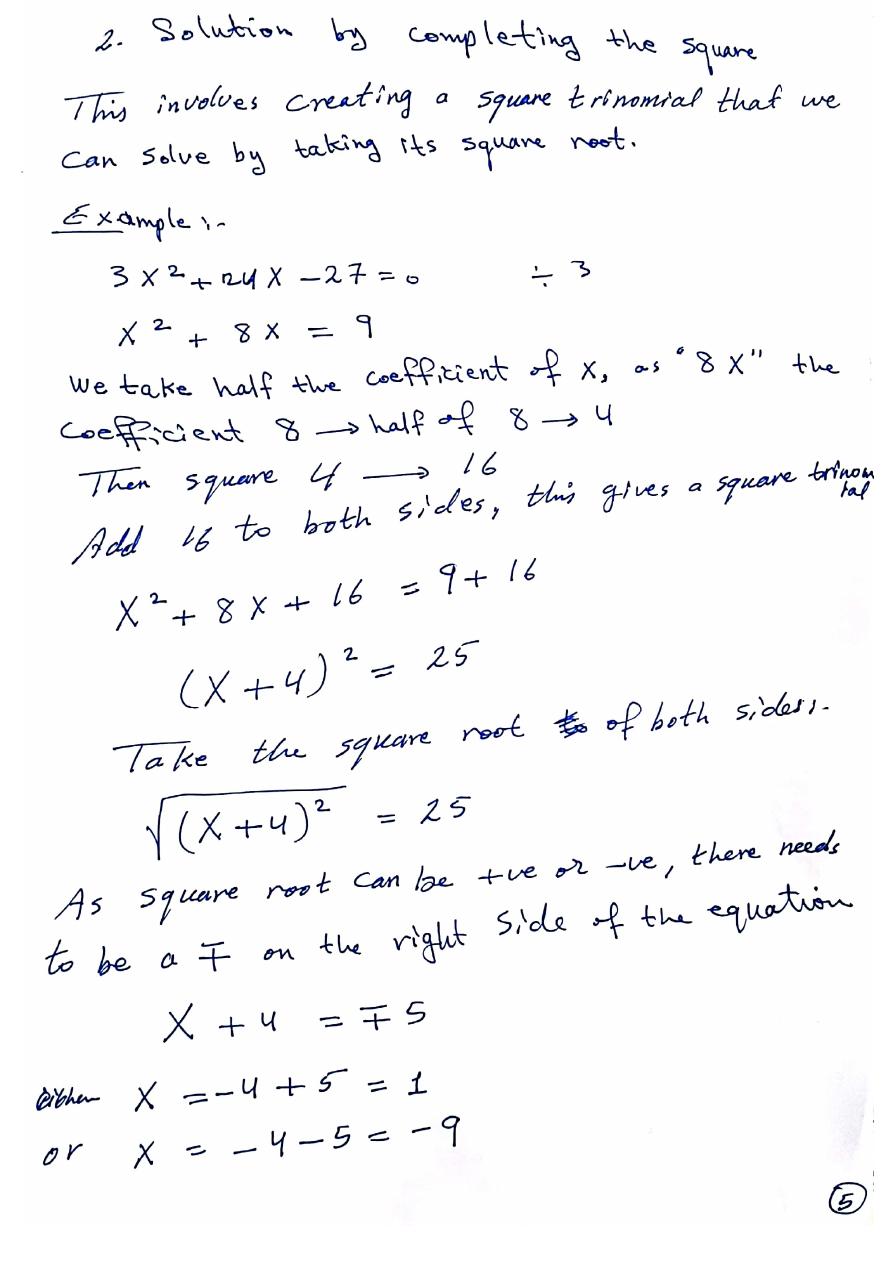 2. Solution by completing the square
This involves creating a square trinomial that we
can solve by taking its square root.
Example :-
3x² + 24x - 27 = 0 ÷ 3
x² + 8x = 9
We take half the coefficient of x, as "8x" the
coefficient 8 → half of 8 → 4
Then square 4 → 16
Add 16 to both sides, this gives a square trinom
ial
x² + 8x + 16 = 9 + 16
(x + 4)² = 25
Take the square root of both sides :-
√(x + 4)² = 25
As square root can be +ve or -ve, there needs
to be a ∓ on the right side of the equation
x + 4 = ∓ 5
either x = -4 + 5 = 1
or x = -4 - 5 = -9
5